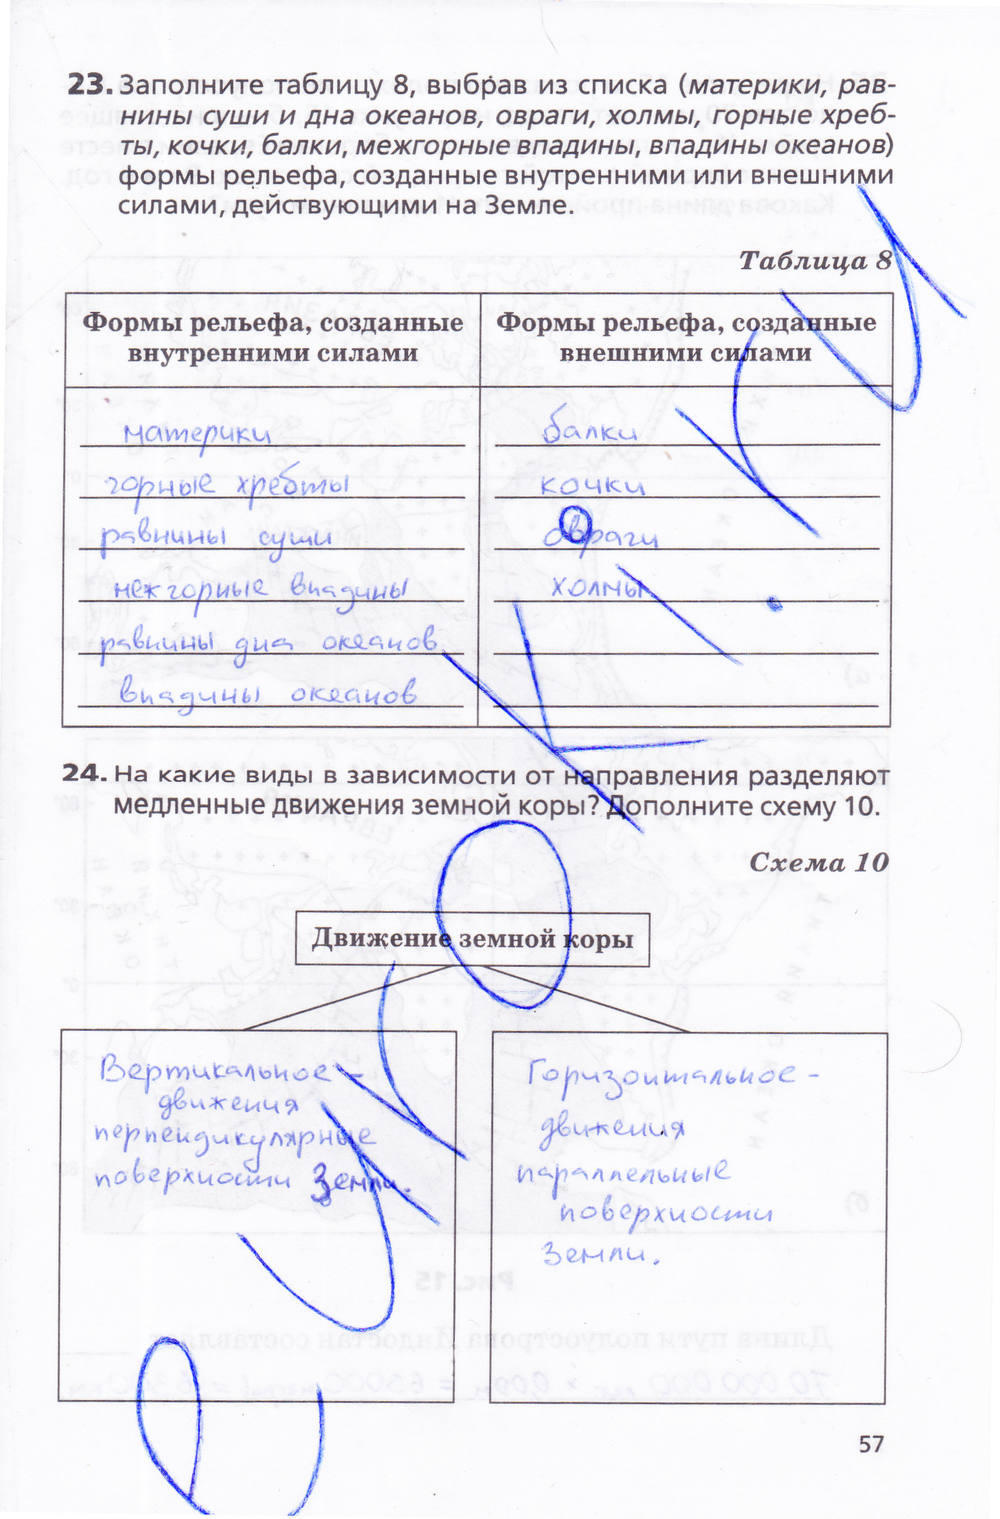 23. Заполните таблицу 8, выбрав из списка (материки, рав-
нины суши и дна океанов, овраги, холмы, горные хреб-
ты, кочки, балки, межгорные впадины, впадины океанов)
формы рельефа, созданные внутренними или внешними
силами, действующими на Земле.
Таблица 8
Формы рельефа, созданные внутренними силами
Формы рельефа, созданные внешними силами
материки
балки
горные хребты
кочки
равнины суши
овраги
межгорные впадины
холмы
равнины дна океанов
впадины океанов
24. На какие виды в зависимости от направления разделяют
медленные движения земной коры? Дополните схему 10.
Схема 10
Движение земной коры
Вертикальное –
движения
перпендикулярные
поверхности Земли.
Горизонтальное –
движения
параллельные
поверхности
Земли.
Рис. 15
Длина пути полуострова Индостан составляет
57